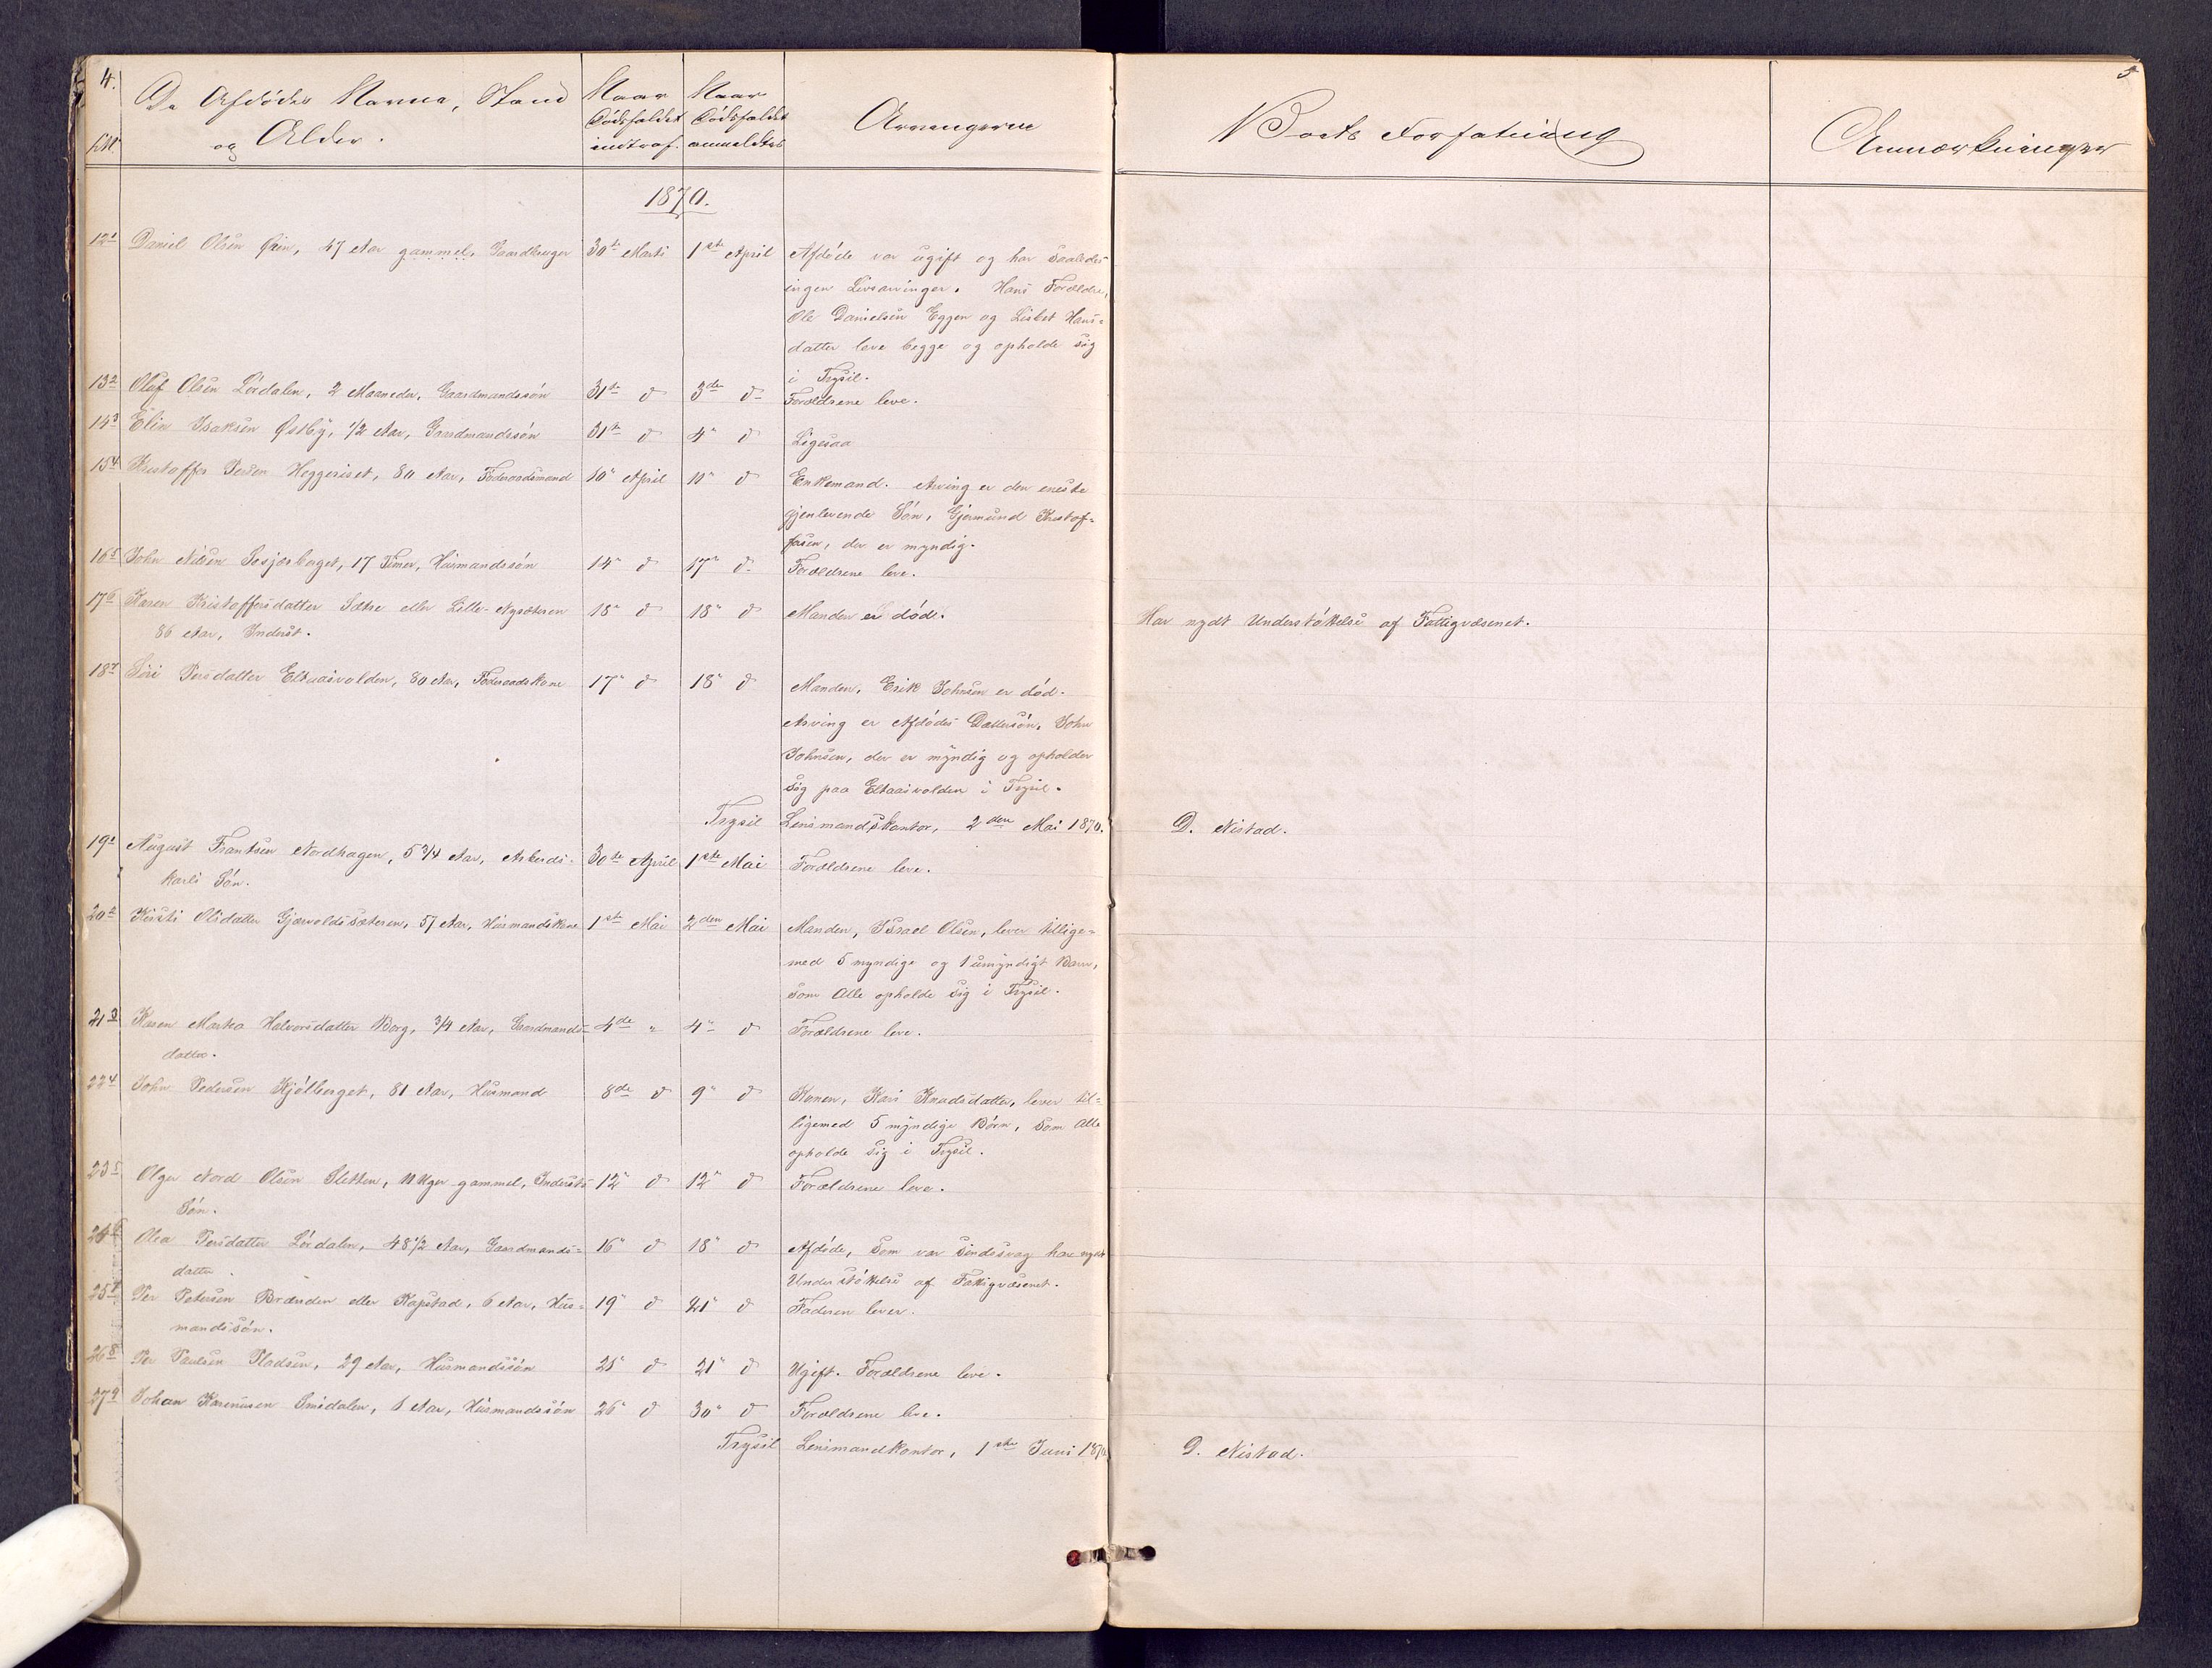 4.
De Afdødes Navne, Stand
og Alder.
Naar
Dødsfaldet
indtraf.
Naar
Dødsfaldet
anmeldtes
Arvingerne
Boets Forfatning
Anmærkninger
5
1870.
12 1 Daniel Olsen Øien, 47 Aar gammel, Gaardbruger 30te Marts 1ste April Afdøde var ugift og har saaledes
ingen Livsarvinger. Hans Forældre,
Ole Danielsen Eggen og Lisbet Hans=
datter leve begge og opholde sig
i Trysil.
13 2 Oluf Olsen Lördalen, 2 Maaneder, Gaardmandssön 31te d 3de d Forældrene leve.
14 3 Elin Isaksen Østby, 1/2 Aar, Gaardmandssön 31te d 4" d Ligesaa
15 4 Kristoffer Persen Heggeriset, 80 Aar, Föderaadsmand 10" April 10" d Enkemand. Arving er den eneste
gjenlevende Sön, Gjermund Kristof=
fersen, der er myndig.
16 5 John Nilsen 17 Timer, Husmandssön 14" d 17" d Forældrene leve.
17 6 Karen Kristoffersdatter Sætre eller Lille-Nysæteren 18" d 18" d Manden er död. Har nydt Understöttelse af Fattigvæsenet.
86 Aar, Inderst.
18 7 Siri Persdatter Eltaasvolden, 80 Aar, Föderaadskone 17" d 18" d Manden, Erik Johnsen er död.
Arving er Afdödes Dattersön, John
Johnsen, der er myndig og opholder
sig paa Eltaasvolden i Trysil.
Trysil Lensmandskontor, 2den Mai 1870. D. Nistad.
19 1 August Frantsen Nordhagen, 5 3/4 Aar, Arbeids= 30te April 1ste Mai Forældrene leve.
karls Sön.
20 2 Kirsti Olsdatter Gjærvoldssæteren, 57 Aar, Husmandskone 1ste Mai 2den Mai Manden, Israel Olsen, lever tillige=
med 5 myndige og 1 umyndigt Barn,
som Alle opholde sig i Trysil.
21 3 Karen Martea Halvorsdatter Borg, 3/4 Aar, Gaardmands= 4de " 4" d Forældrene leve.
datter.
22 4 John Pedersen Kjölberget, 81 Aar, Husmand 8de d 9" d Konen, Kari Knudsdatter, lever til=
ligemed 5 myndige Börn, som Alle
opholde sig i Trysil.
23 5 Olger Nord Olsen Sletten, 11 Uger gammel, Inderste 12" d 12" d Forældrene leve.
Sön.
24 6 Olea Persdatter Lördalen, 48 1/2 Aar, Gaardmands= 16" d 18" d Afdöde, som var sindssvag har nydt
datter. Understöttelse af Fattigvæsenet.
25 7 Per Petersen Brænden eller Kapstad, 6 Aar, Hus= 19" d 21" d Faderen lever.
mandssön.
26 8 Per Paulsen Pladsen, 29 Aar, Husmandssön 21" d Ugift. Forældrene leve.
27 9 Johan Karenusen Smidalen, 6 Aar, Husmandssön 26" d 30" d Forældrene leve.
Trysil Lensmandkontor, 1ste Juni 1870 D. Nistad.